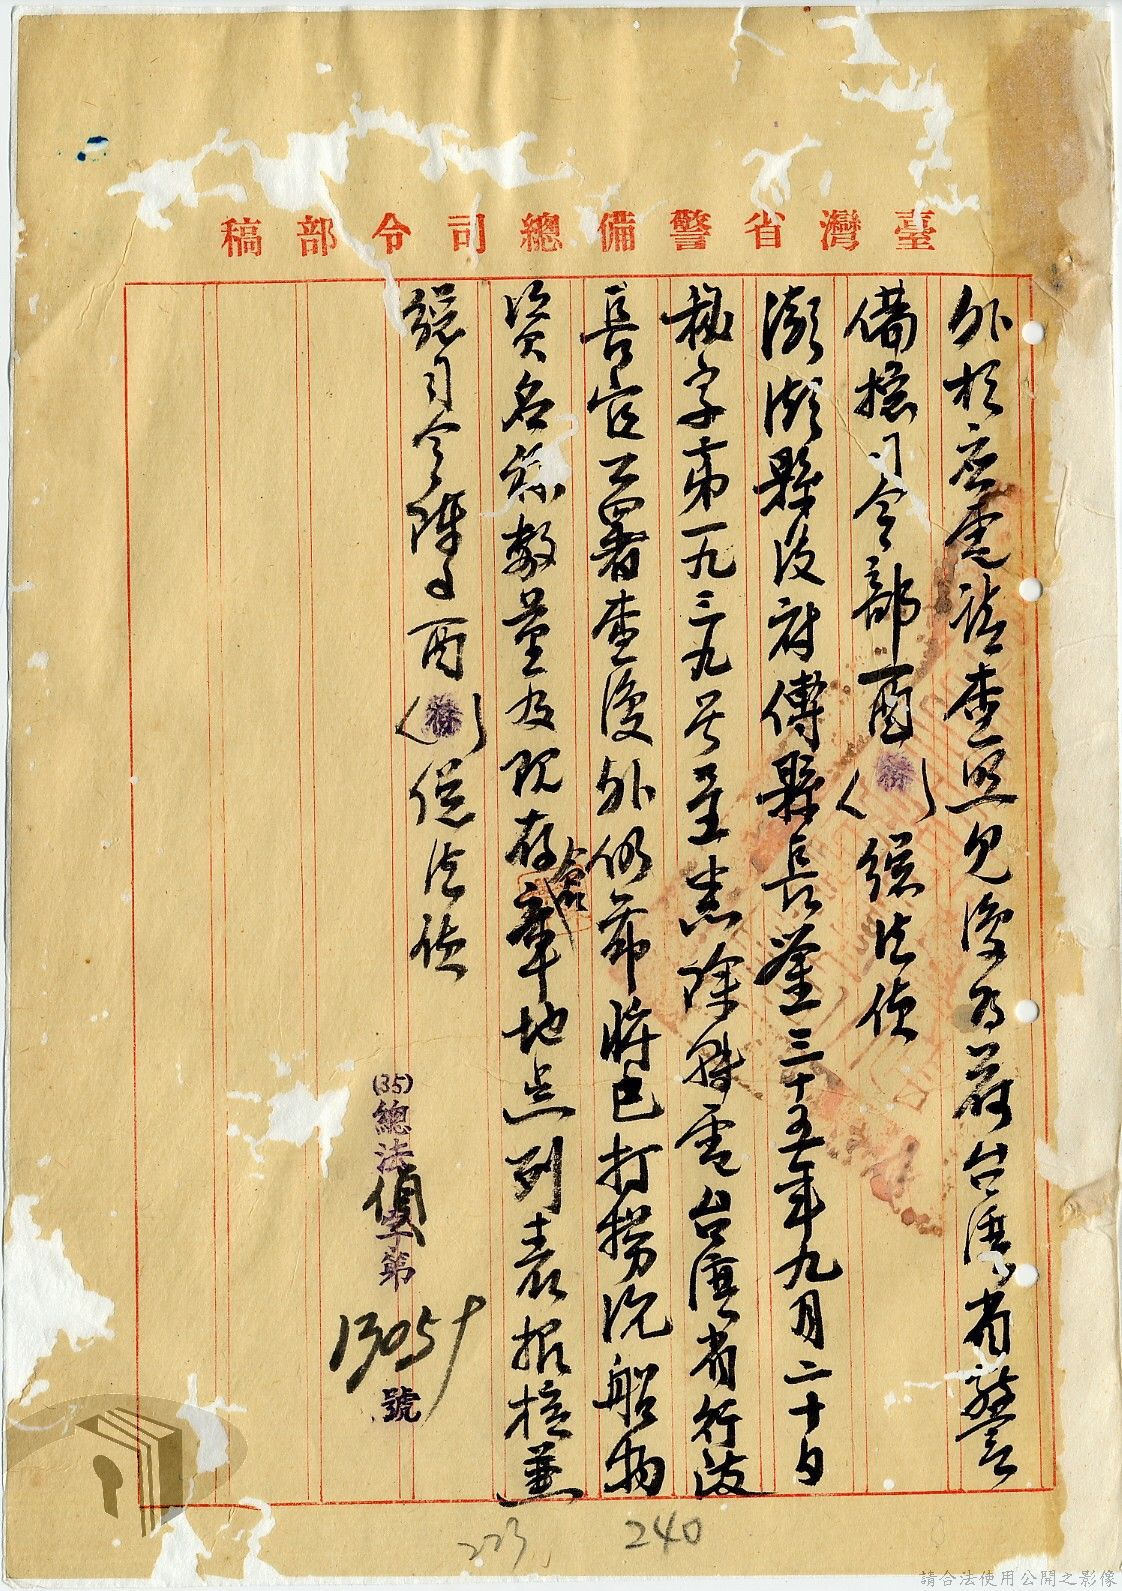 臺灣省警備總司令部稿
外相应電請查照見復為荷台灣省警
備總司令部酉( )總法偵
澎湖縣政府傅縣長鉴三十五年九月二十日
秘字第一九三九号呈悉除轉電台灣省行政
長官公署查復外仰即將已打撈沉船物
資名称數量及現存倉庫地点列表报核並
總司令陳酉( )總法偵
(35)總法偵字第
13057
號
223
240
請合法使用公開之影像